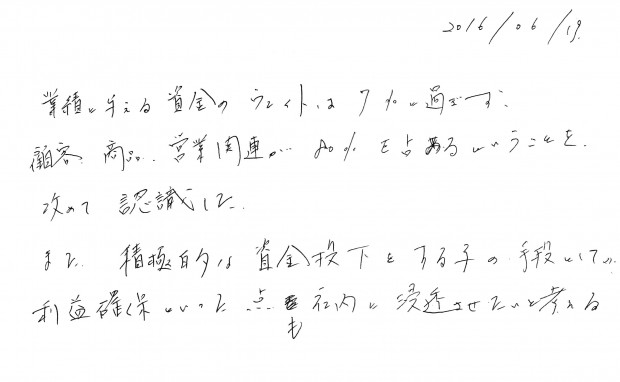 2016/06/19.
業績に与える資金のウエイトは7%に過ぎず、
顧客、商品、営業関連が80%を占めるということを、
改めて認識した。
また、積極的な資金投下をする子の手段としての
利益確保といった点も社内に浸透させたいと考える